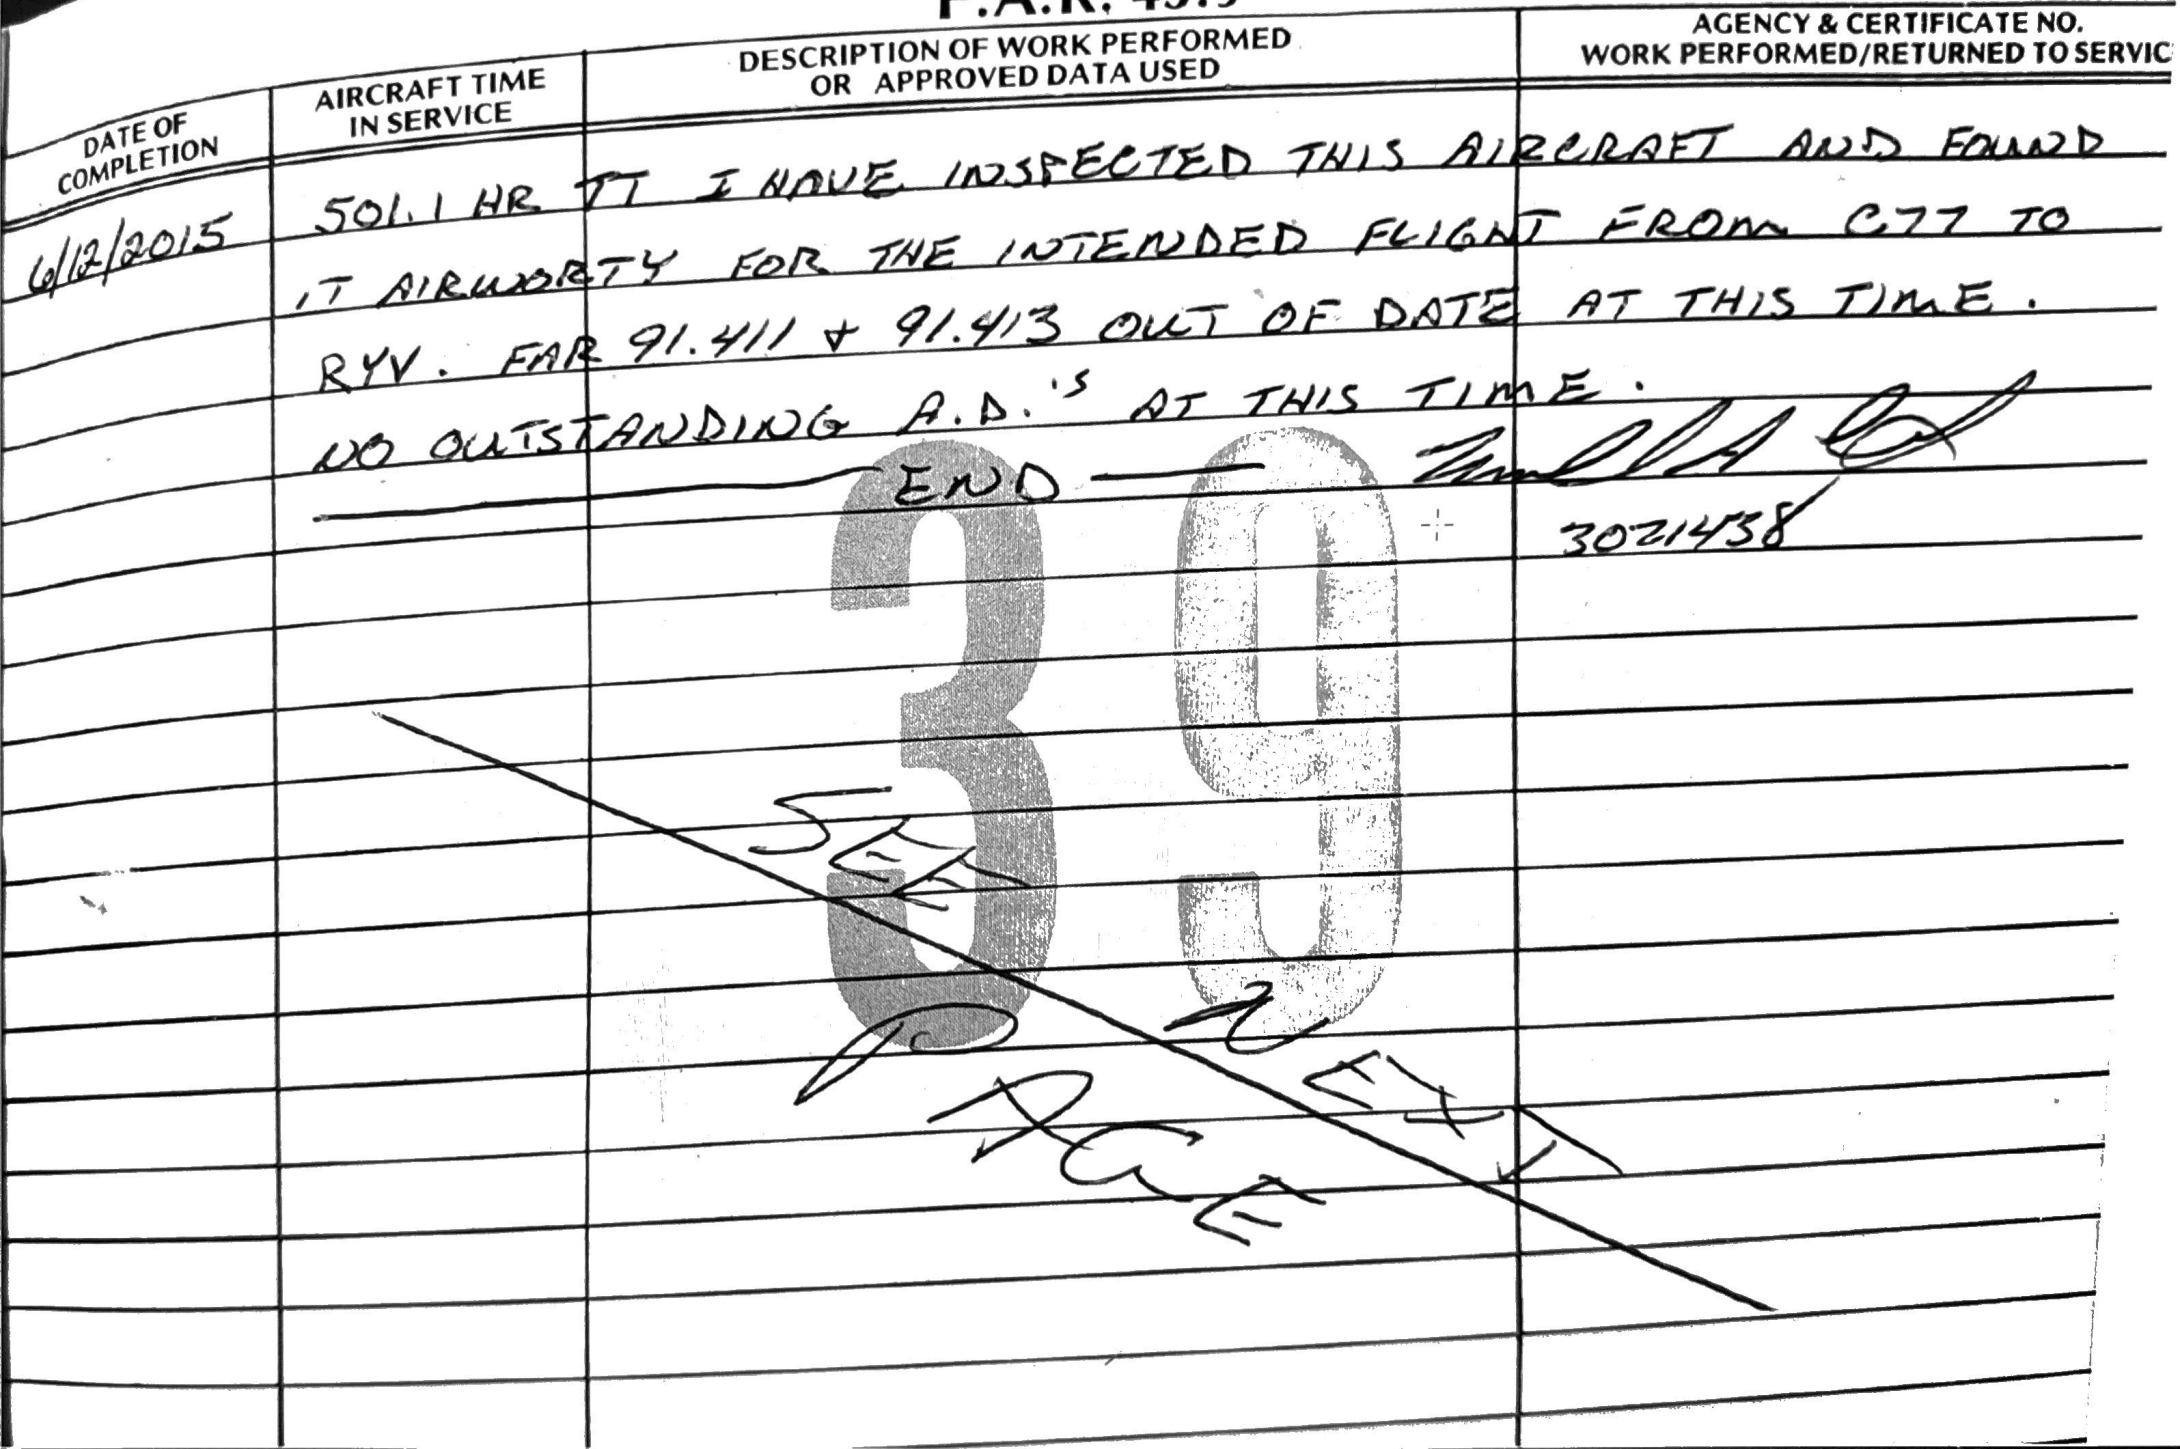 F.A.R. 43.9
DATE OF
COMPLETION
AIRCRAFT TIME
IN SERVICE
DESCRIPTION OF WORK PERFORMED
OR APPROVED DATA USED
AGENCY & CERTIFICATE NO.
WORK PERFORMED/RETURNED TO SERVIC
6/12/2015
501.1 HR TT I HAVE INSPECTED THIS AIRCRAFT AND FOUND
IT AIRWORTY FOR THE INTENDED FLIGHT FROM C77 TO
RYV. FAR 91.411 & 91.413 OUT OF DATE AT THIS TIME.
NO OUTSTANDING A.D.'S AT THIS TIME.
END
3021458
39
SEE
NEXT
PAGE